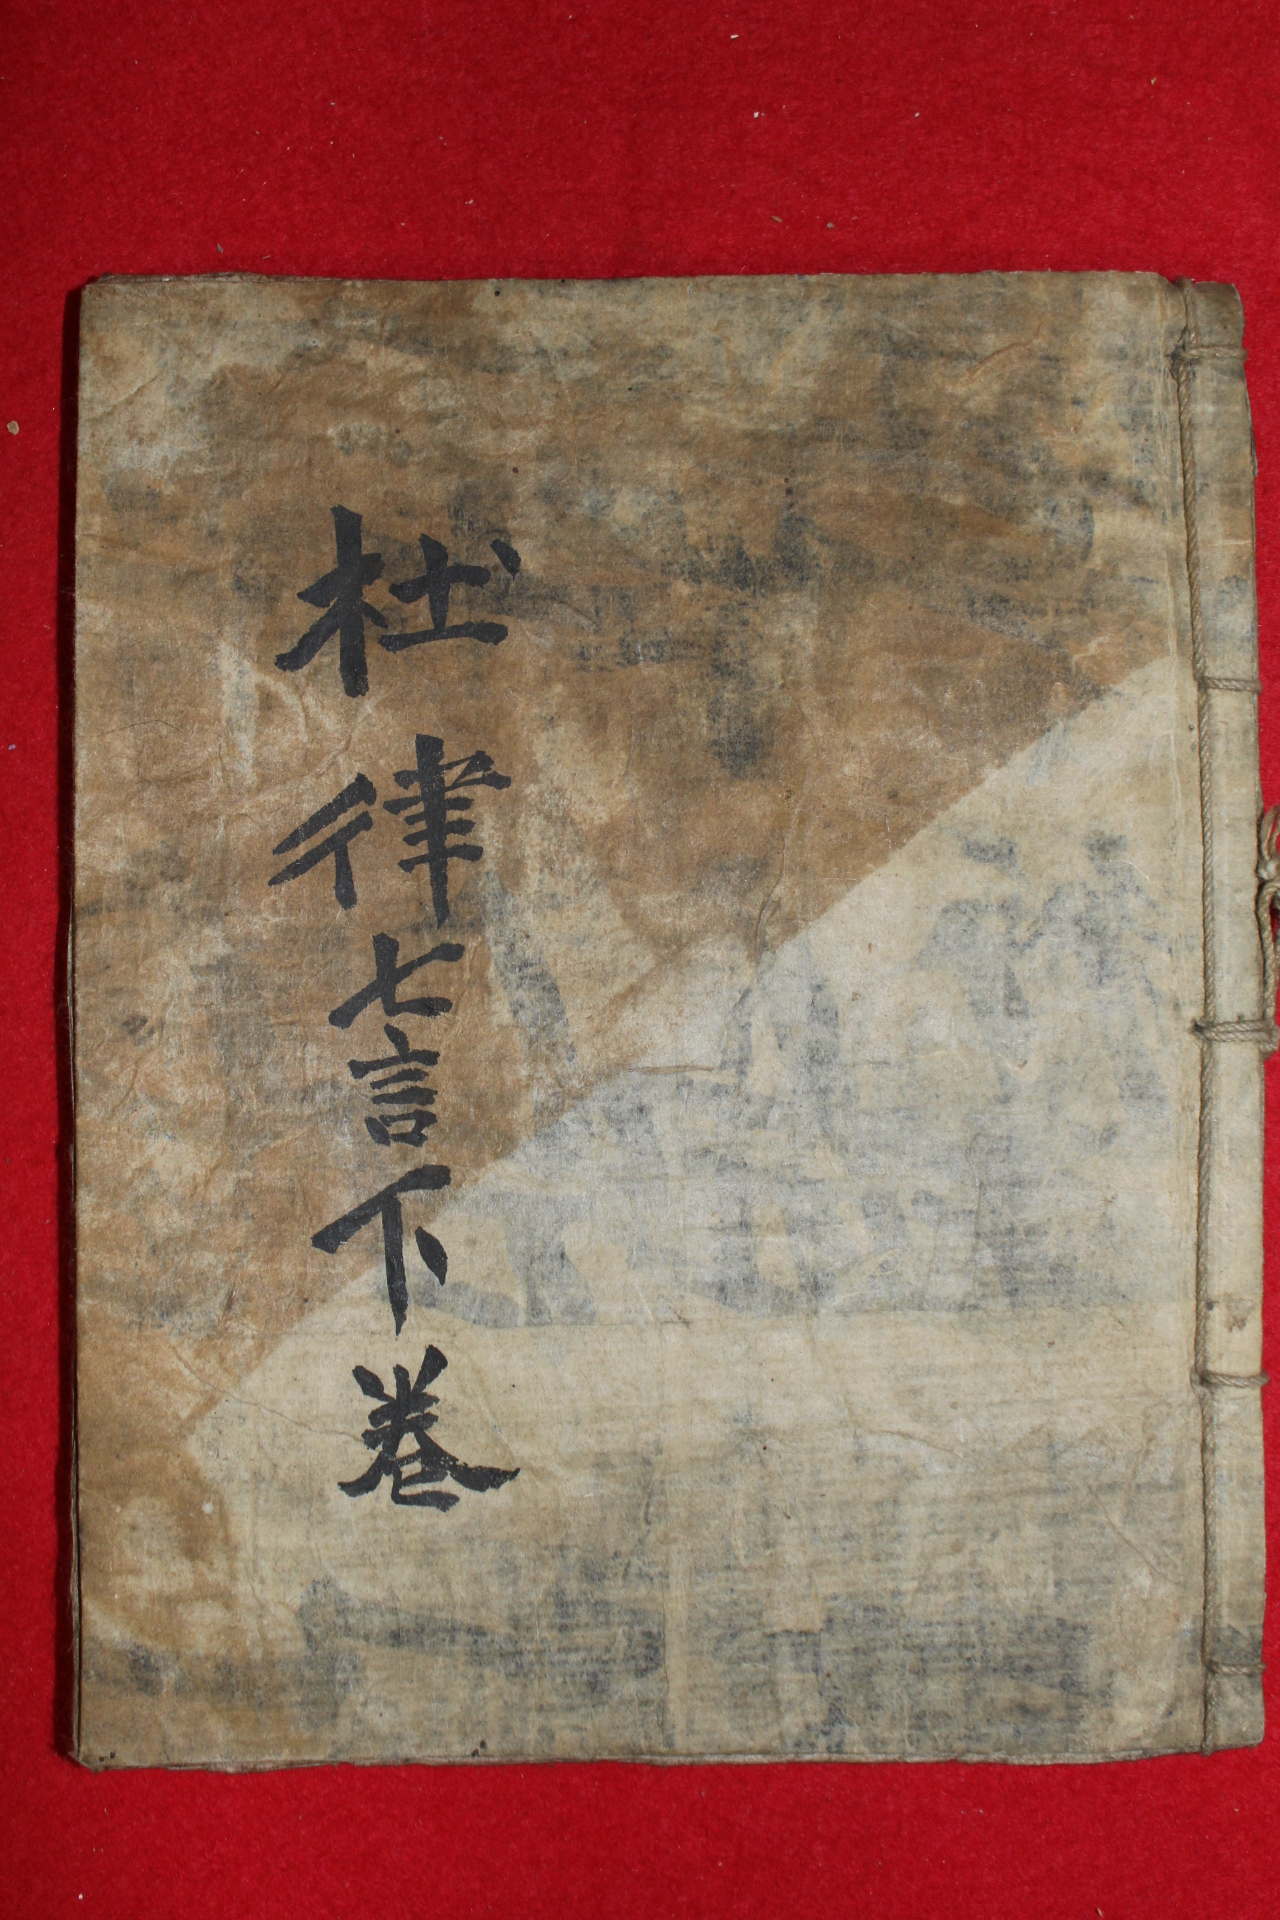 杜律七言下卷